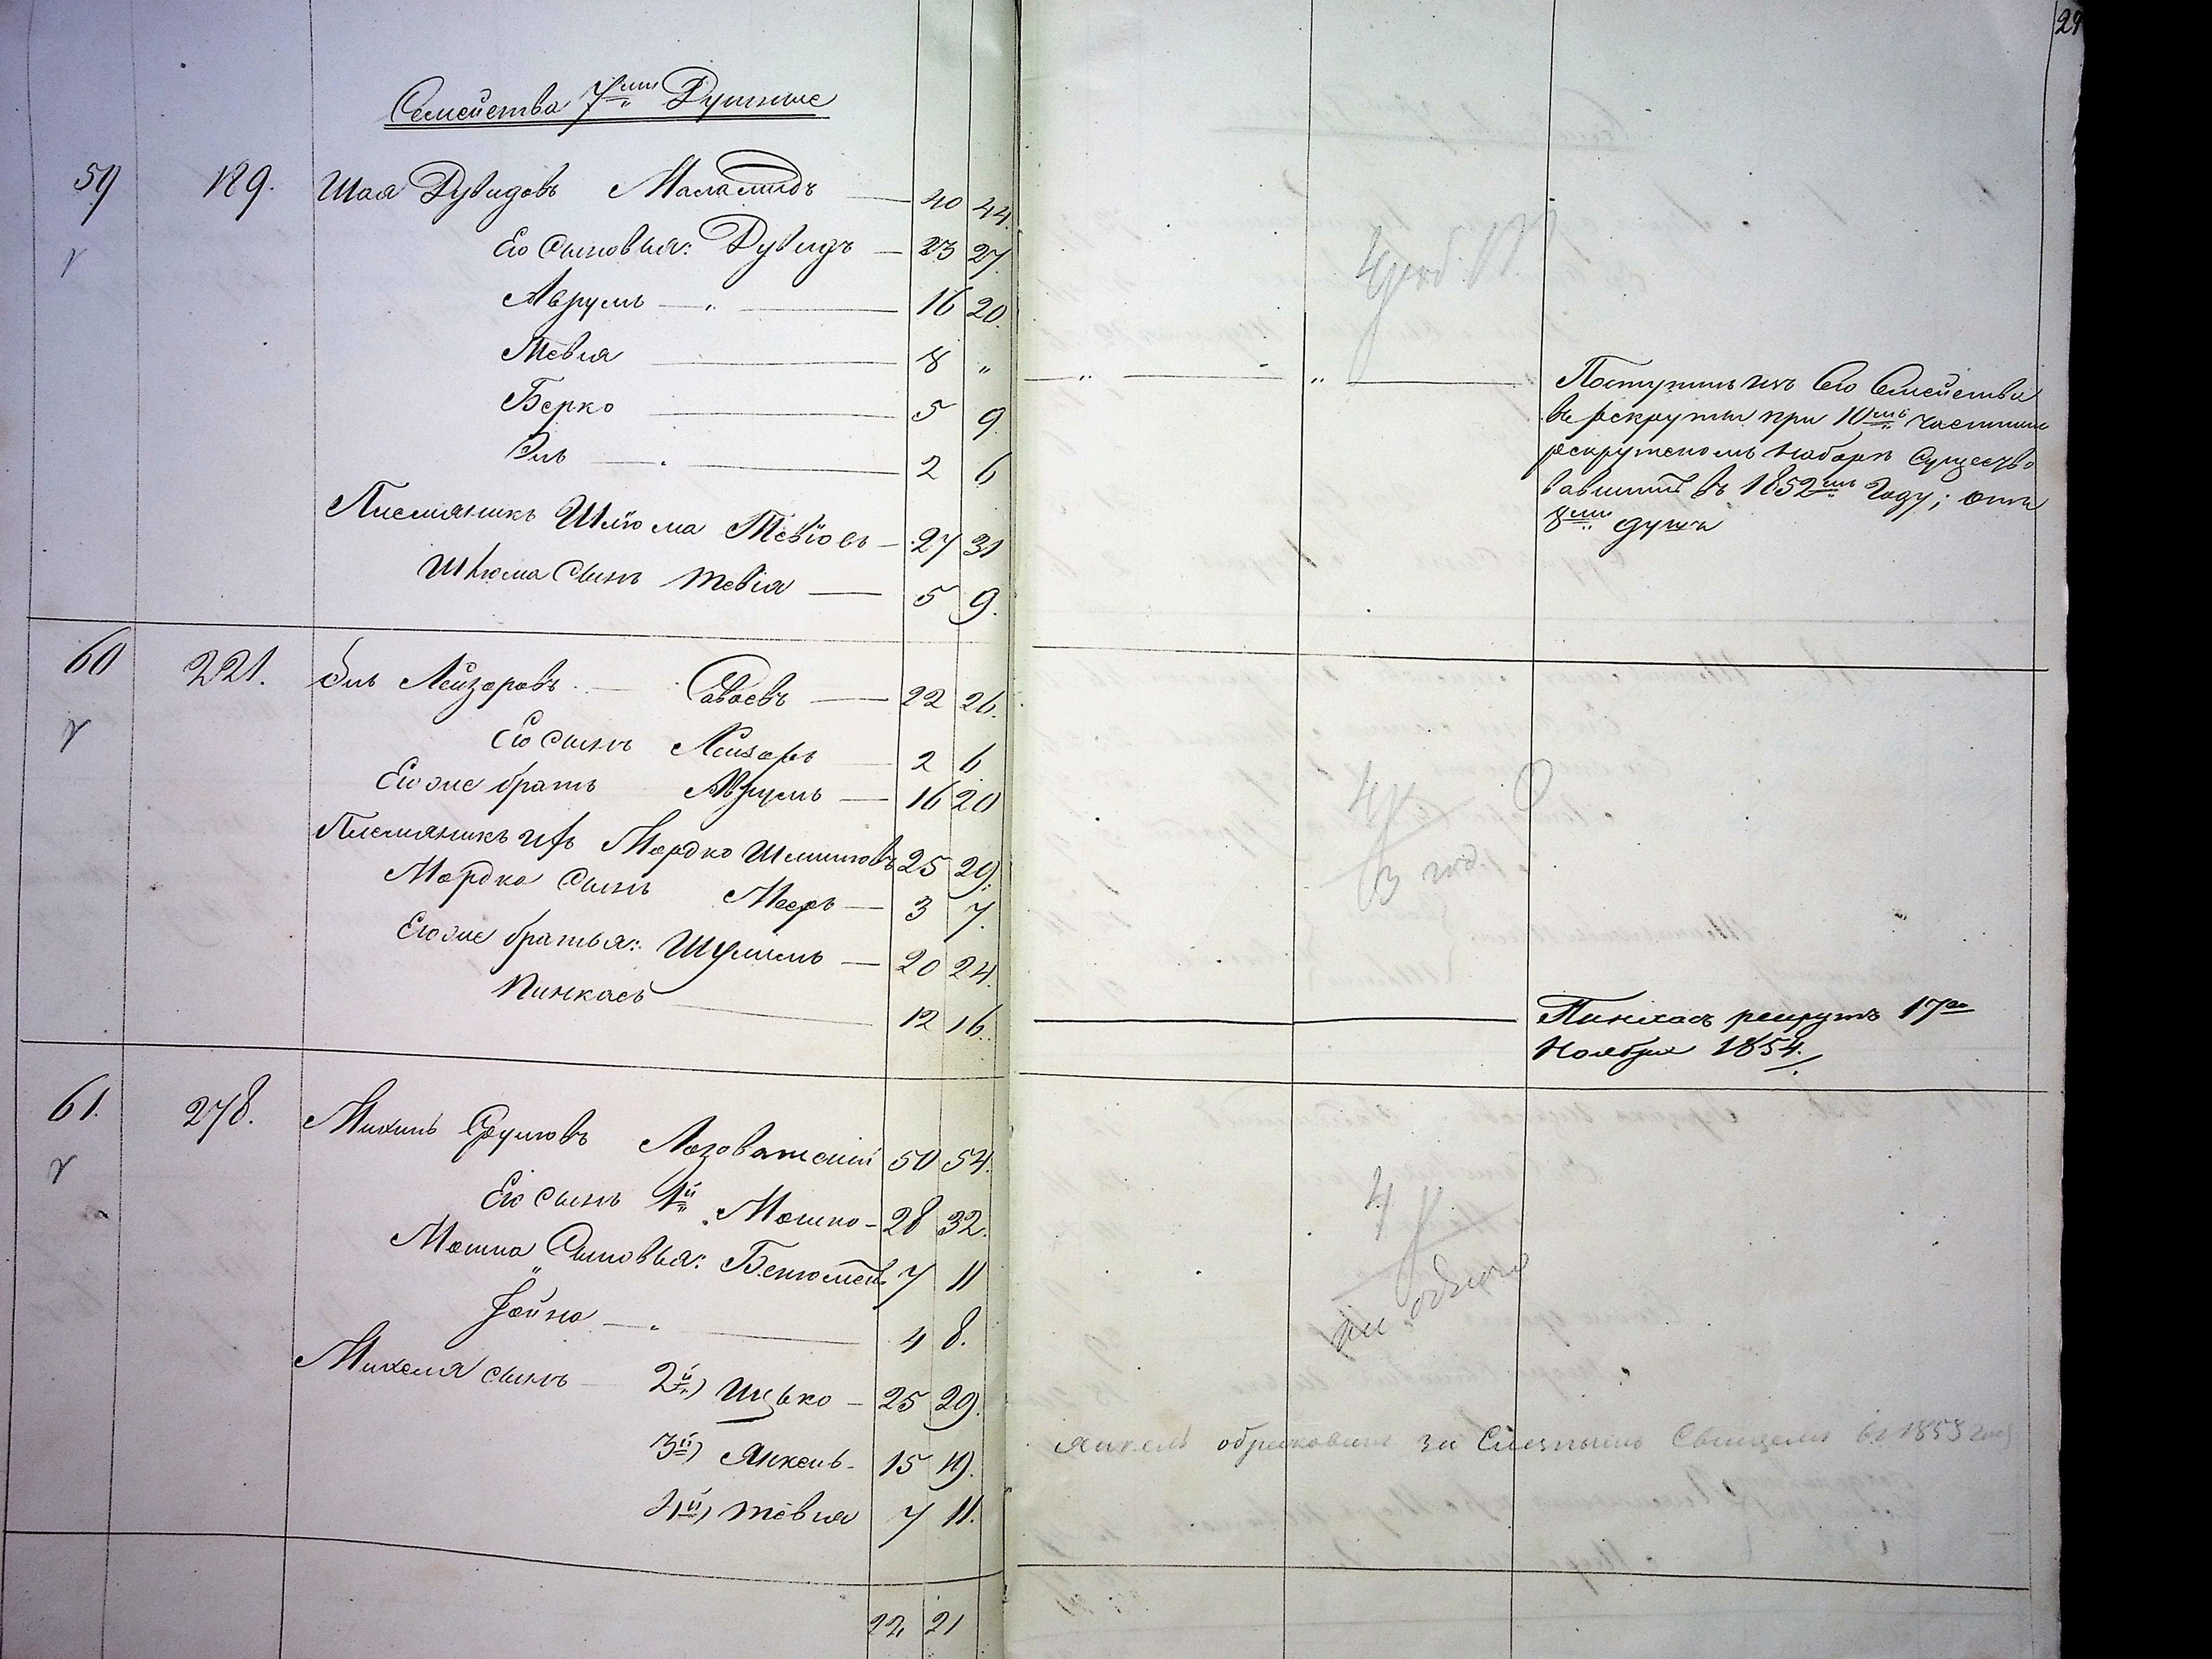 29
Семейства 7ми Душные
59 189. Шая Дувидовъ Маламидъ 40 44.
Его сыновья: Дувидъ 23 27.
Аврумъ 16 20.
Тевия 8 "
Берко 5 9.
Эль 2 6
Племяникъ Шлiома Тевiовъ 27 31
Шлiома сынъ Тевiя 5 9.
Поступилъ изъ Его Семейства
въ рекруты при 10мъ частномъ
рекрутскомъ наборѣ существо
вавшимъ въ 1852мъ Году; отъ
8ми душъ
60 221. Эль Лейзоровъ Саваевъ 22 26.
Его сынъ Лейзоръ 2 6.
Его же братъ Аврумъ 16 20
Племяникъ ихъ Мордко Шмилювъ 25 29.
Мордка сынъ Мееръ 3 7.
Его же братья: Шмиль 20 24.
Пинкасъ 12 16.
4
3 год.
Пинхасъ рекрутъ 17го
Ноября 1854.
61. 278. Михель Сруловъ Лозоватскiй 50 54.
Его сынъ 1й Мошко 28 32.
Мошка Сыновья: Бенюменъ 7 11
Хойна 4 8.
Михеля сынъ 2й) Ицько 25 29.
3й) Янкель 15 19.
4й) Тевия 7 11.
4
Янкель за въ 1853 году
22 21